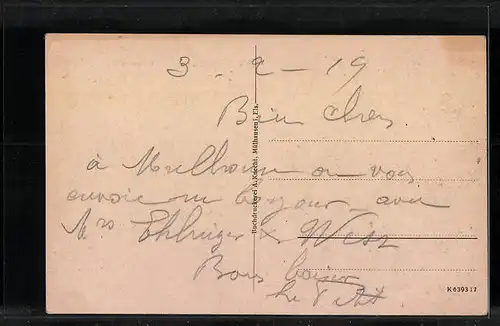 3 - 2 - 19
Bien chers
à Mulhouse on vous
envoie un bonjour avec
Mrs Ehlinger &
Bons baiser
Buchdruckerei A. Knecht, Mülhausen i. Els.
K 639317